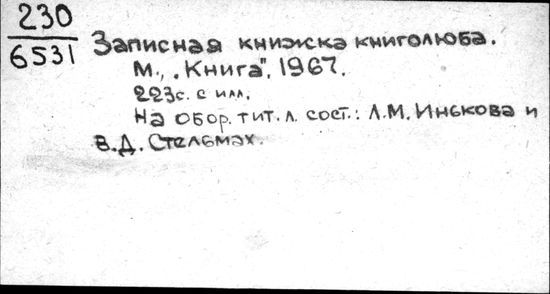 230
6531
Записная книжска книголюба.
М., „Книга", 1967.
223с. с илл.
На обор. тит. л. сост.: Л.М. Инькова и
В.Д. Стельмах.